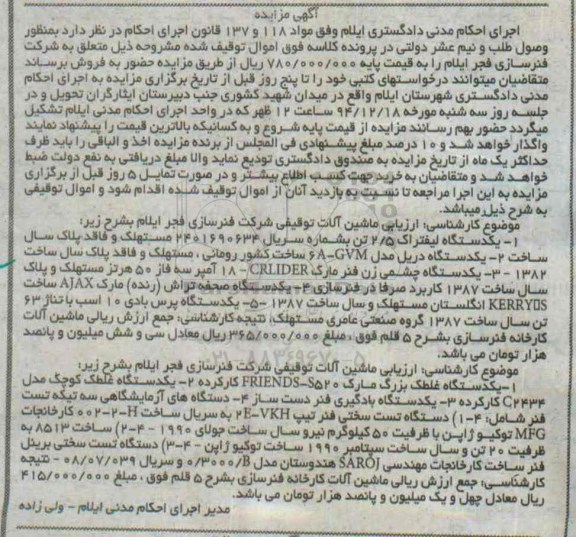 آگهی مزایده
اجرای احکام مدنی دادگستری ایلام وفق مواد ۱۱۸ و ۱۳۷ قانون اجرای احکام در نظر دارد بمنظور
وصول طلب و نیم عشر دولتی در پرونده کلاسه فوق اموال توقیف شده مشروحه ذیل متعلق به شرکت
فنرسازی فجر ایلام را به قیمت پایه ۷۸۰/۰۰۰/۰۰۰ ریال از طریق مزایده حضور به فروش برساند
متقاضیان میتوانند درخواستهای کتبی خود را تا پنج روز قبل از تاریخ برگزاری مزایده به اجرای احکام
مدنی دادگستری شهرستان ایلام واقع در میدان شهید کشوری جنب دبیرستان ایثارگران تحویل و در
جلسه روز سه شنبه مورخه ۹۴/۱۲/۱۸ ساعت ۱۲ ظهر که در واحد اجرای احکام مدنی ایلام تشکیل
میگردد حضور بهم رسانند مزایده از قیمت پایه شروع و به کسانیکه بالاترین قیمت را پیشنهاد نمایند
واگذار خواهد شد و ۱۰ درصد مبلغ پیشنهادی فی المجلس از برنده مزایده اخذ و الباقی را باید ظرف
حداکثر یک ماه از تاریخ مزایده به صندوق دادگستری تودیع نماید والا مبلغ دریافتی به نفع دولت ضبط
خواهد شد و متقاضیان به خرید جهت کسب اطلاع بیشتر و در صورت تمایل ۵ روز قبل از برگزاری
مزایده به این اجرا مراجعه تا نسبت به بازدید آنان از اموال توقیف شده اقدام شود و اموال توقیفی
به شرح ذیل میباشد.
موضوع کارشناسی: ارزیابی ماشین آلات توقیفی شرکت فنرسازی فجر ایلام بشرح زیر:
۱- یکدستگاه لیفتراک ۲/۵ تن بشماره سریال ۲۴۰۱۶۹۰۶۳۴ مستهلک و فاقد پلاک سال
ساخت ۲- یکدستگاه دریل مدل ۶A-GVM ساخت کشور رومانی، مستهلک و فاقد پلاک سال ساخت
۱۳۸۲ -۳- یکدستگاه چشمی زن فنر مارک CRLIDER - ۱۸ آمپر سه فاز ۵۰ هرتز مستهلک و پلاک
سال ساخت ۱۳۸۷ کاربرد صرفا در فنرسازی ۴- یکدستگاه صحفه تراش (رنده) مارک AJAX ساخت
KERRY'S انگلستان مستهلک و سال ساخت ۱۳۸۷ -۵- یکدستگاه پرس بادی ۱۰ اسب با تناژ ۶۳
تن سال ساخت ۱۳۸۷ گروه صنعتی عامری مستهلک، نتیجه کارشناسی: جمع ارزش ریالی ماشین آلات
کارخانه فنرسازی بشرح ۵ قلم فوق، مبلغ ۳۶۵/۰۰۰/۰۰۰ ریال معادل سی و شش میلیون و پانصد
هزار تومان می باشد.
موضوع کارشناسی: ارزیابی ماشین آلات توقیفی شرکت فنرسازی فجر ایلام بشرح زیر:
۱- یکدستگاه غلطک بزرگ مارک FRIENDS-S۵۲۰ کارکرده ۲- یکدستگاه غلطک کوچک مدل
C۲۴۳۴ کارکرده ۳- یکدستگاه بادگیری فنر دست ساز ۴- دستگاه های آزمایشگاهی سه تیکه تست
فنر شامل: ۴-۱) دستگاه تست سختی فنر تیپ ۲E-VKH به سریال ساخت H-۲-۰۰۲ کارخانجات
MFG توکیو ژاپن با ظرفیت ۵۰ کیلوگرم نیرو سال ساخت جولای ۱۹۹۰ - ۴-۲) ساخت ۸۵۱۳ به
ظرفیت ۲۰ تن و سال ساخت سپتامبر ۱۹۹۰ ساخت توکیو ژاپن - ۴-۳) دستگاه تست سختی برینل
فنر ساخت کارخانجات مهندسی SAROJ هندوستان مدل B/۰/۳۰۰۰ و سریال ۰۸/۰۷/۰۳۹ - نتیجه
کارشناسی: جمع ارزش ریالی ماشین آلات کارخانه فنرسازی بشرح ۵ قلم فوق، مبلغ ۴۱۵/۰۰۰/۰۰۰
ریال معادل چهل و یک میلیون و پانصد هزار تومان می باشد.
مدیر اجرای احکام مدنی ایلام - ولی زاده